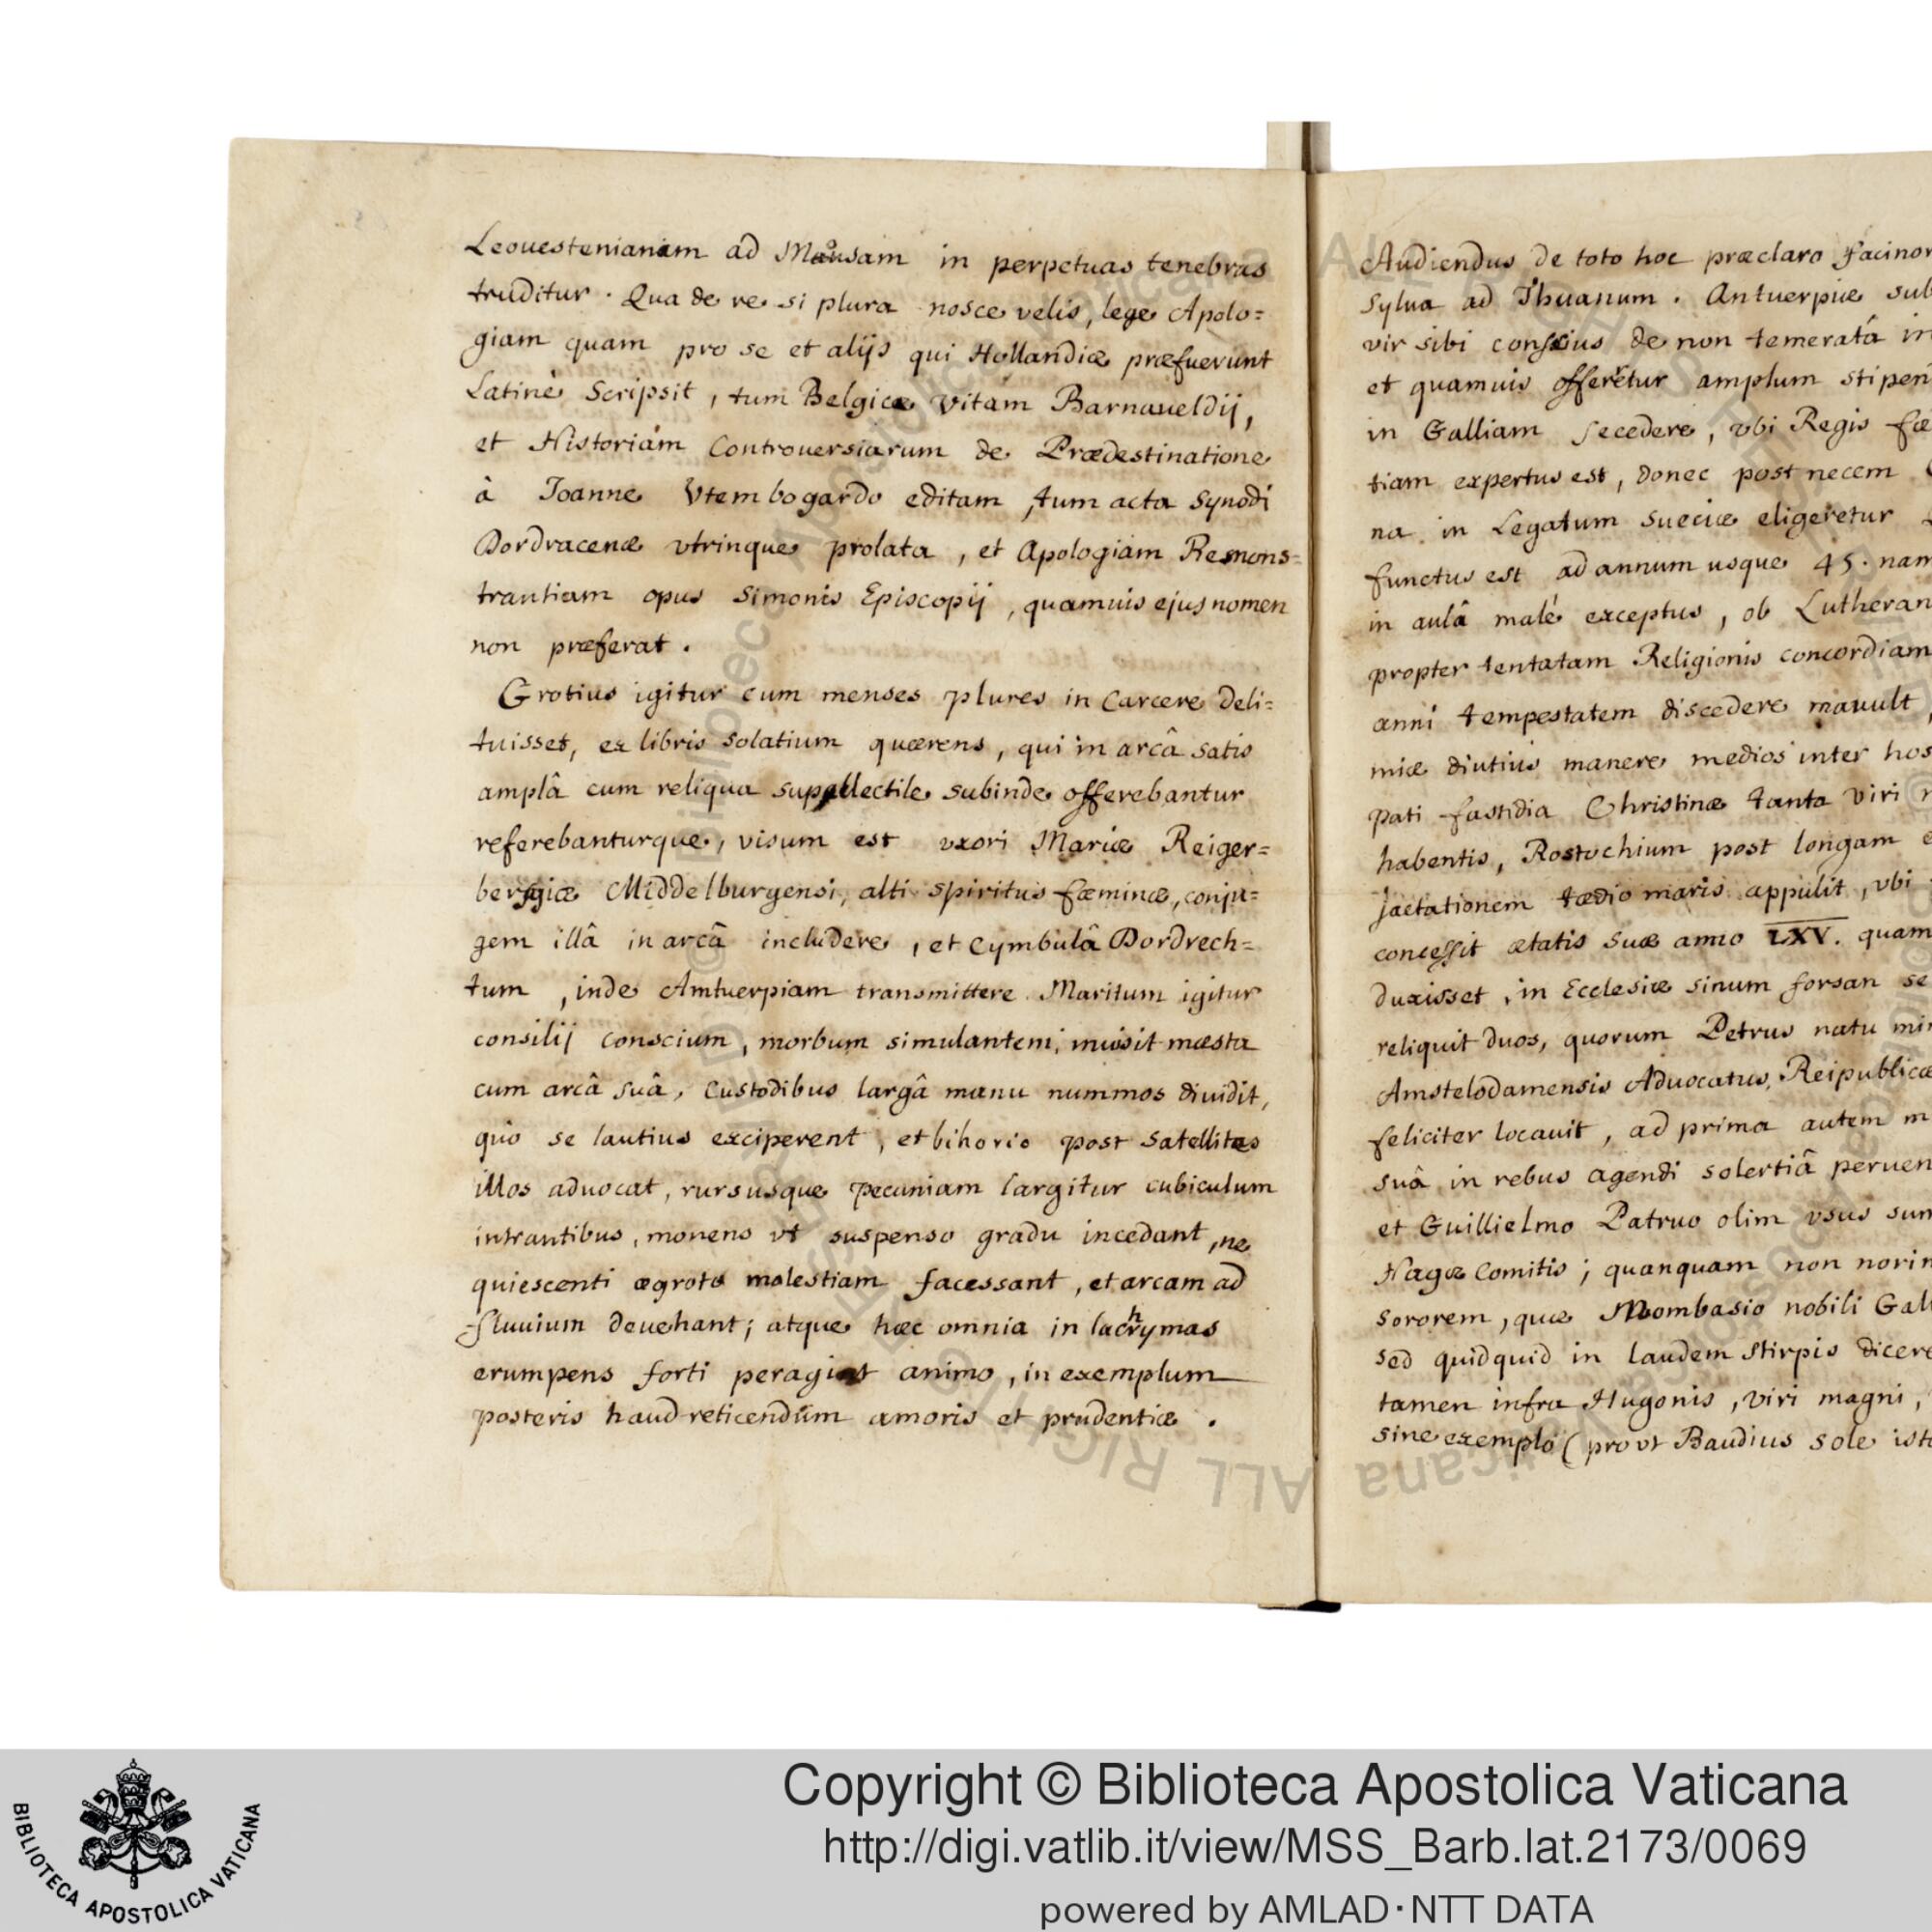 Leouestenianam ad Mosam in perpetuas tenebras
truditur. Qua de re si plura nosce velis, lege Apolo=
giam quam pro se et alijs qui Hollandiæ præfuerunt
Latinè Scripsit, tum Belgicæ Vitam Barnaueldij,
et Historiam Controuersiarum de Prædestinatione
à Joanne Vtembogardo editam, tum acta Synodi
Dordracenæ vtrinque prolata, et Apologiam Remons=
trantiam opus Simonis Episcopij, quamuis ejus nomen
non præferat.
Grotius igitur cum menses plures in Carcere deli=
tuisset, ex libris solatium quærens, qui in arcâ satis
amplâ cum reliqua supellectile subinde offerebantur
referebanturque, visum est uxori Mariæ Reiger=
bergiæ Middelburgensi, alti spiritus fæminæ, conju=
gem illâ in arcâ includere, et Cymbulâ Dordrech=
tum, inde Amtuerpiam transmittere. Maritum igitur
consilij conscium, morbum simulantem, inuisit mæsta
cum arcâ suâ, Custodibus largâ manu nummos diuidit,
quo se lautius exciperent, et bihorio post Satellites
illos aduocat, rursusque pecuniam largitur cubiculum
intrantibus, monens vt suspenso gradu incedant, ne
quiescenti ægroto molestiam facessant, et arcam ad
fluuium deuehant; atque hæc omnia in lachrymas
erumpens forti peragit animo, in exemplum
posteris haud reticendum amoris et prudentiæ.
Audiendus de toto hoc præclaro facinor
Sylua ad Thuanum. Antuerpiæ sub
vir sibi conscius de non temeratâ in
et quamuis offeretur amplum stipen
in Galliam secedere, vbi Regis fæ
tiam expertus est, donec post necem
na in Legatum Sueciæ eligeretur
functus est ad annum usque 45. nam
in aulâ malè exceptus, ob Lutheran
propter tentatam Religionis concordiam
anni tempestatem discedere mauult,
miæ diutius manere medios inter hos
pati fastidia Christinæ tanta viri
habentis, Rostochium post longam
jactationem tædio maris appulit, vbi
concessit ætatis suæ anno LXV. quam
duxisset, in Ecclesiæ sinum forsan se
reliquit duos, quorum Petrus natu mi
Amstelodamensis Aduocatus, Reipublicæ
feliciter locauit, ad prima autem m
suâ in rebus agendi solertiâ peruen
et Guillielmo Patruo olim vsus sum
Hagæ Comitis; quanquam non norin
sororem, quæ Mombasio nobili Gall
sed quidquid in laudem Stirpis dicere
tamen infra Hugonis, viri magni,
sine exemplo (pro vt Baudius sole ist
Copyright © Biblioteca Apostolica Vaticana
http://digi.vatlib.it/view/MSS_Barb.lat.2173/0069
powered by AMLAD·NTT DATA
BIBLIOTECA APOSTOLICA VATICANA